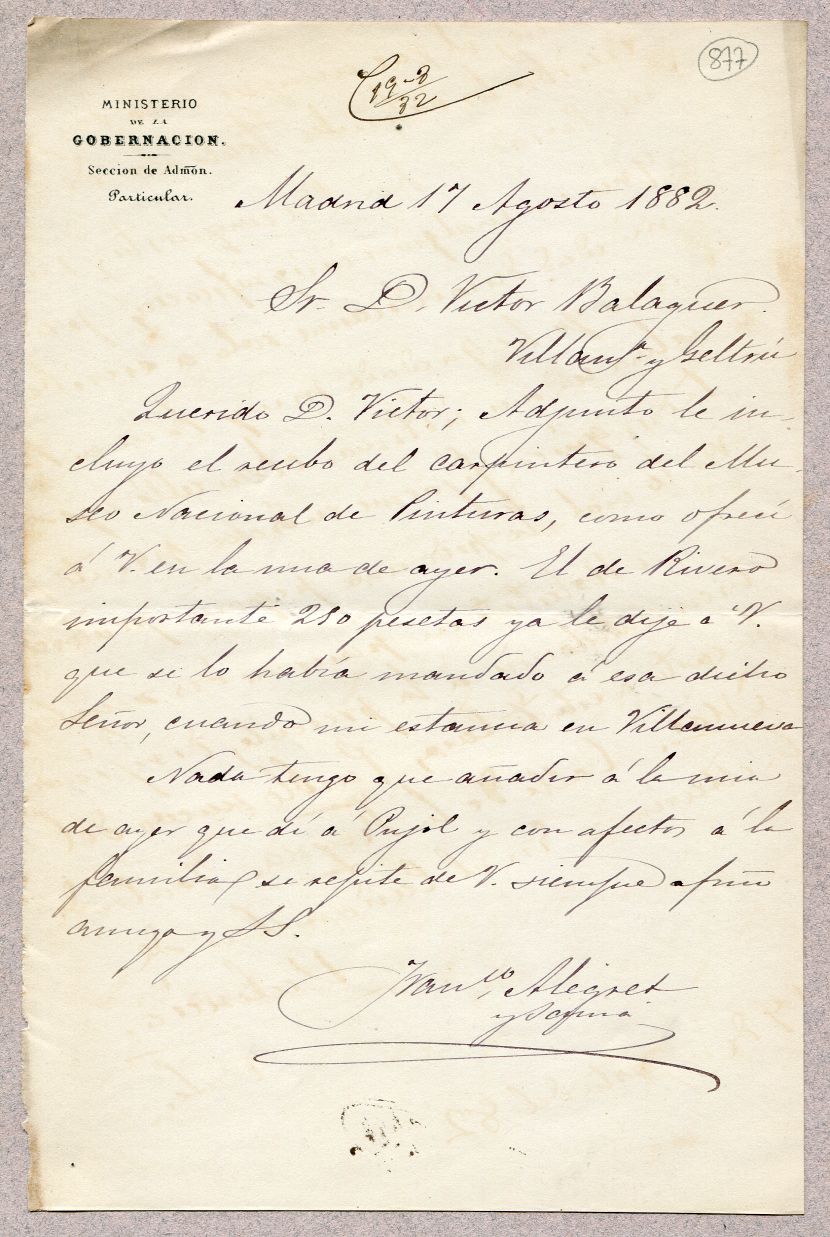 877
19-8/82
MINISTERIO
DE LA
GOBERNACION.
Seccion de Admōn.
Particular.
Madrid 17 Agosto 1882.
Sr. D. Victor Balaguer.
Villanª y Geltrú
Querido D. Victor; Adjunto le in-
cluyo el recibo del carpintero del Mu-
seo Nacional de Pinturas, como ofrecí
á V. en la mia de ayer. El de Rivero
importante 250 pesetas ya le dije á V.
que se lo había mandado á esa dicho
Señor, cuando mi estancia en Villanueva
Nada tengo que añadir á la mia
de ayer que dí á Pujol y con afectos á la
familia se repite de V. siempre afmo
amigo y SS.
Franco. Alegret
y